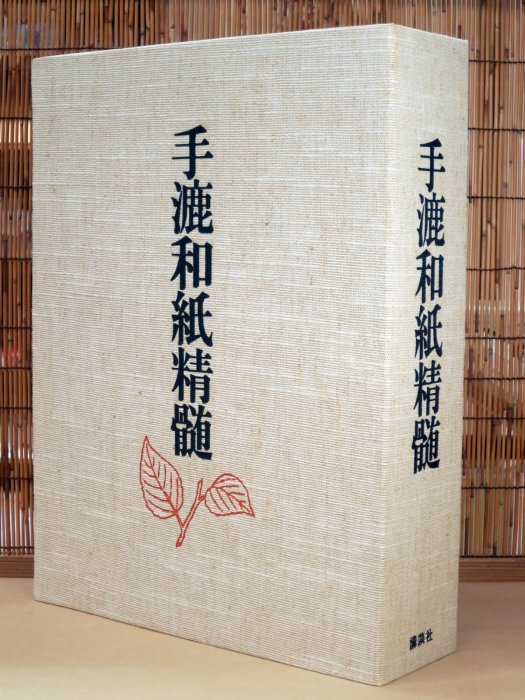 手漉和紙精髄
手漉和紙精髄
講談社